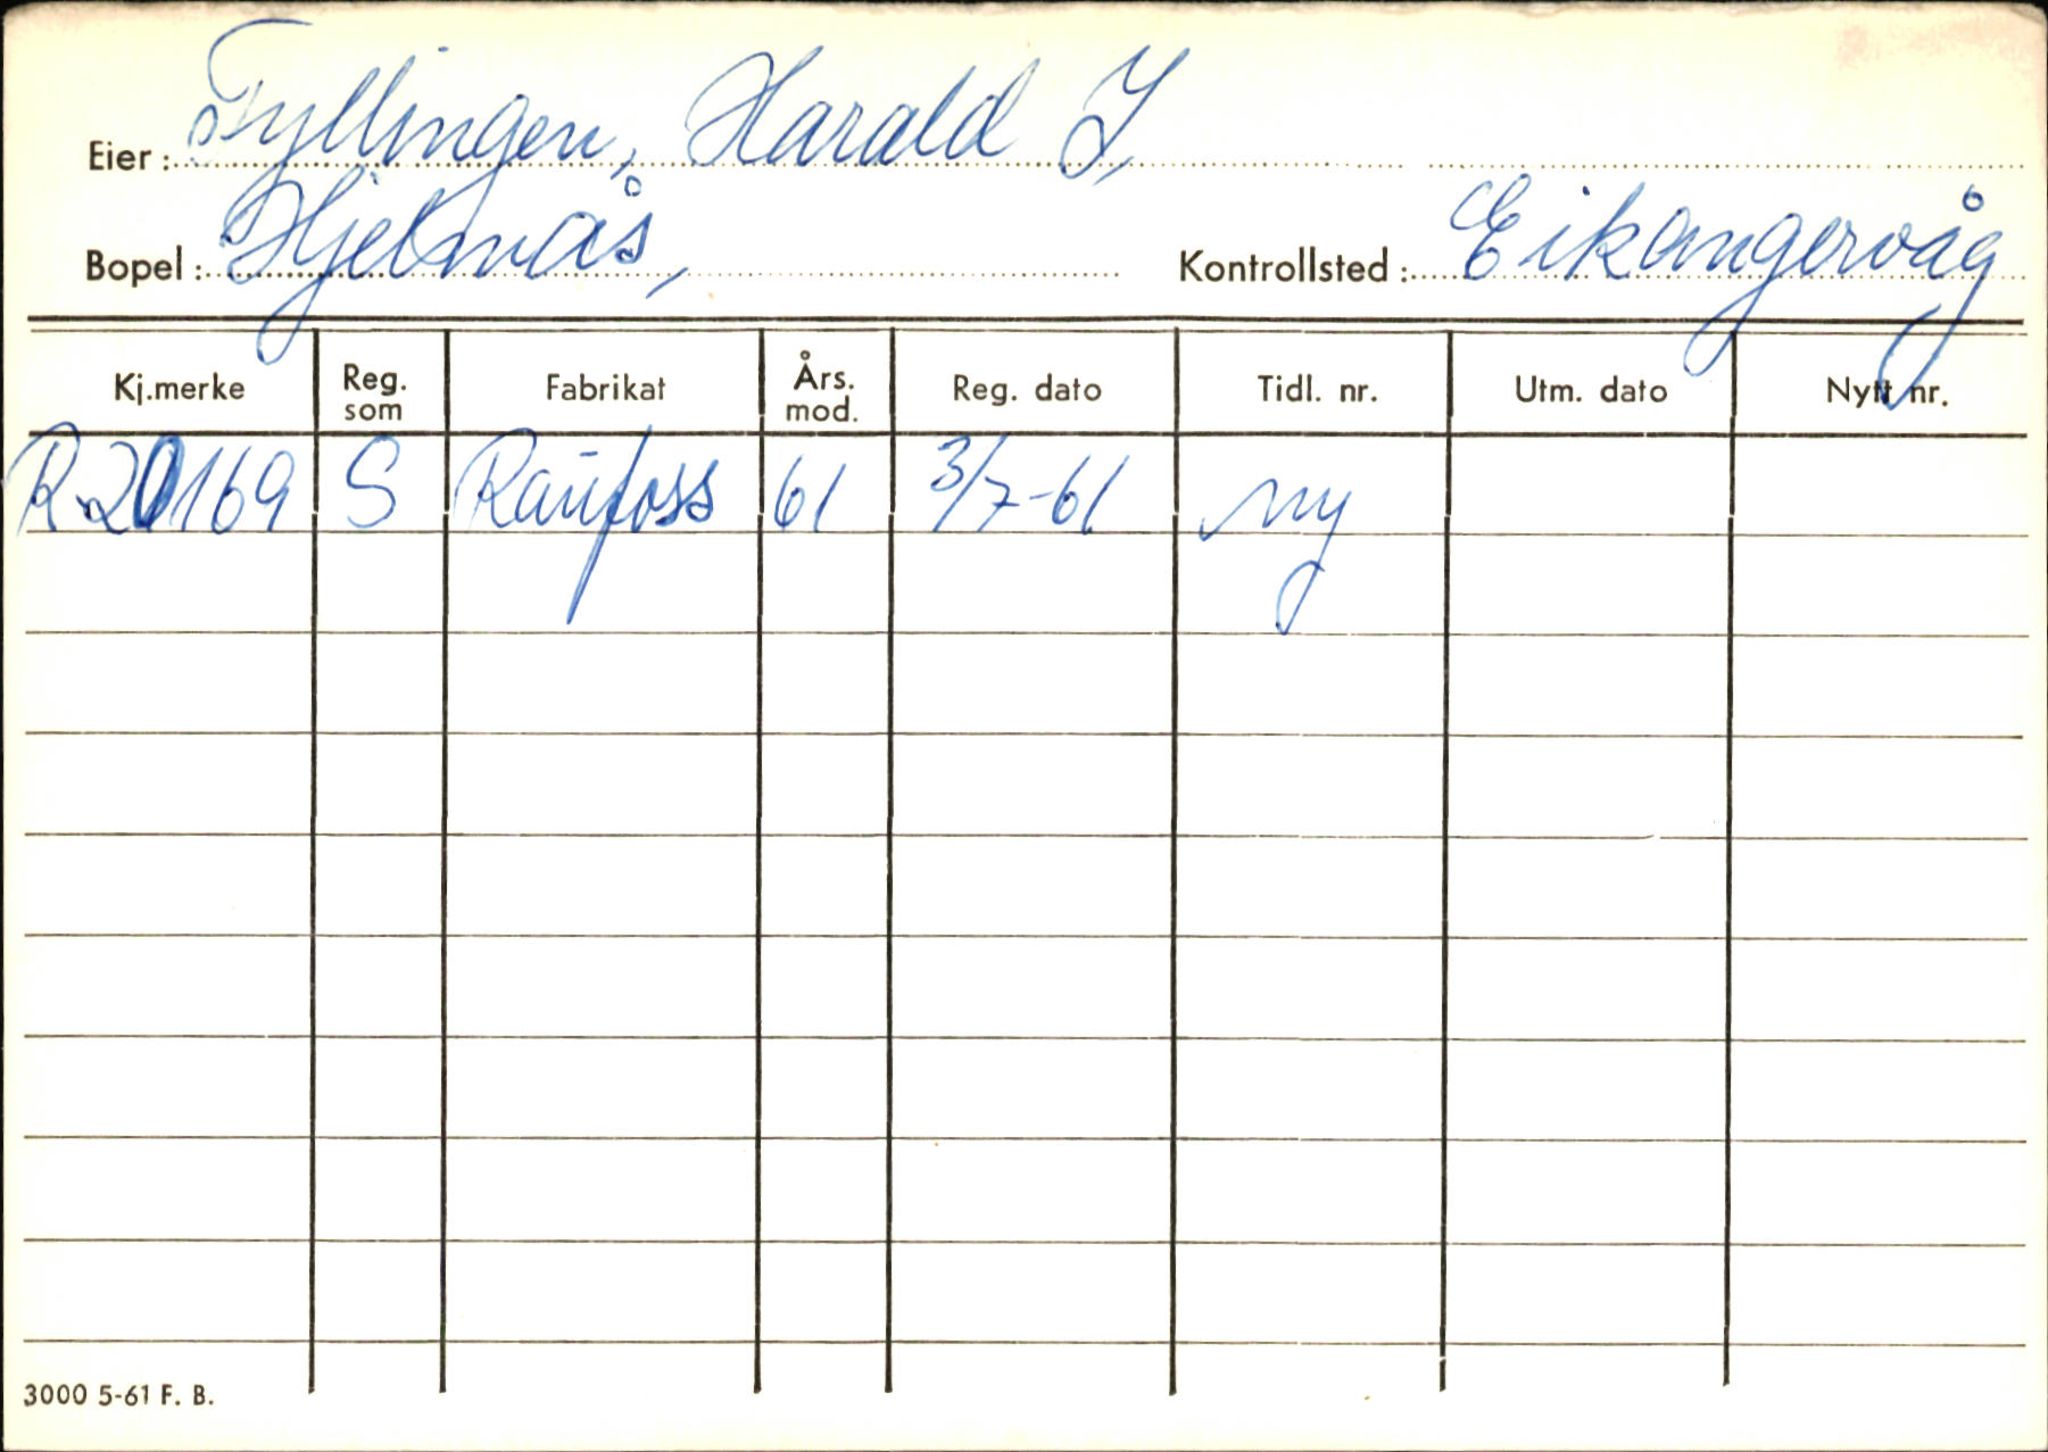 Eier: Fyllingen, Harald I,
Bopel: Hjelmås, Kontrollsted: Eikangervåg
Kj.merke Reg. som Fabrikat Års. mod. Reg. dato Tidl. nr. Utm. dato Nytt nr.
R20169 S Raufoss 61 3/7-61 ny
3000 5-61 F. B.